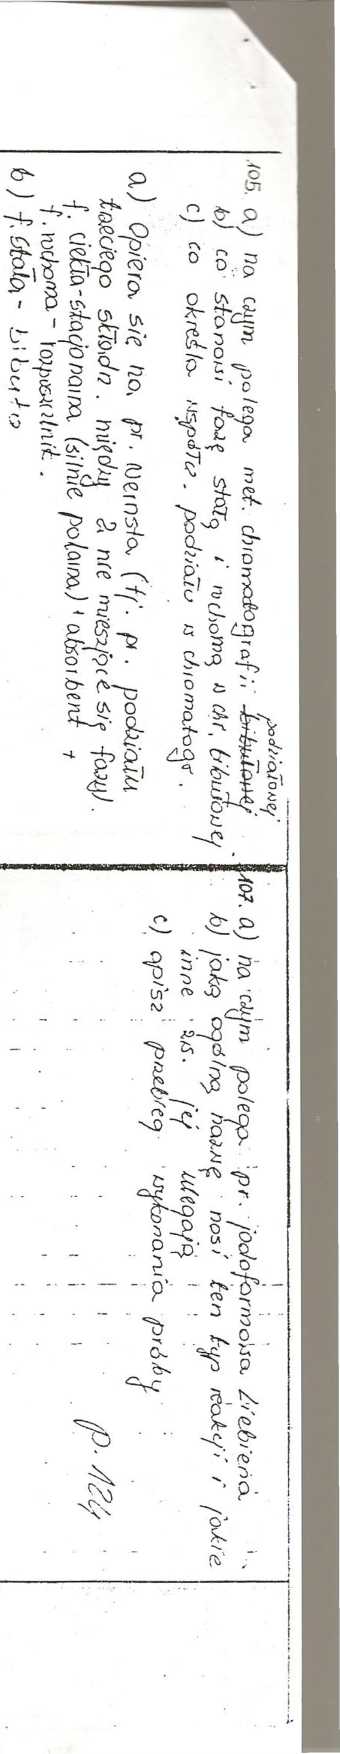 105. a) na czym polega met. chromatografii bibułowej podziałowej
b) co stanowi fazę stałą i ruchomą w chr. bibułowej.
c) co określa współcz. podziału w chromatogr.
a) Opiera się na pr. Nernsta (tj. pr. podziału
trzeciego składn. między 2 nie mieszające się fazy).
f. ciekła-stacjonarna (silnie polarna) + absorbent +
f. ruchoma - rozpuszczalnik.
b) f. stała - bibuła
107. a) na czym polega pr. jodoformowa Liebiena
b) jaką ogólną nazwę nosi ten typ reakcji i jakie
inne zw. jej ulegają
c) opisz przebieg wykonania próby
p. 124